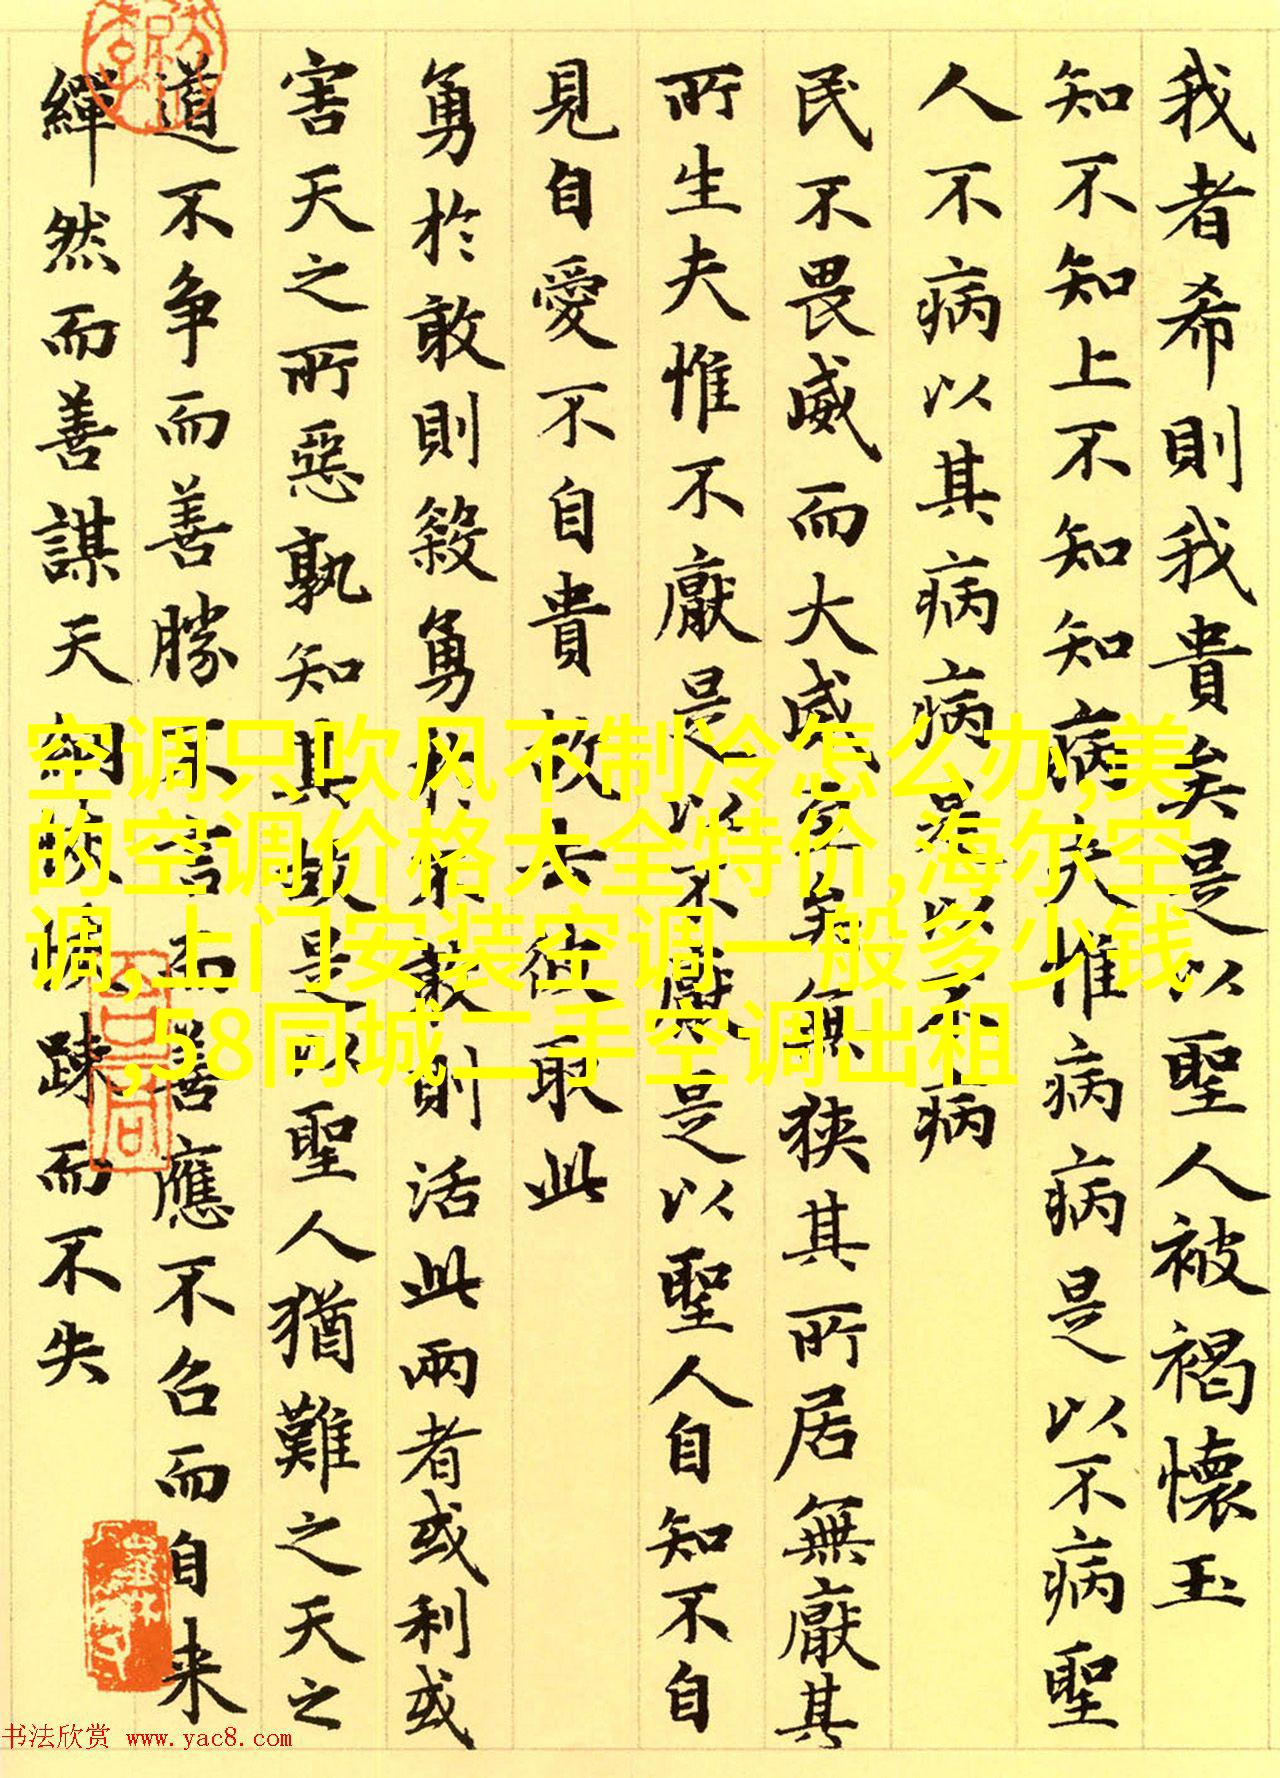 我者希則我貴矣是以聖人被褐懷玉
知不知上不知知病夫惟病病是以不病聖
人不病以其病病是以不病
民不畏威而大威至矣無狹其所居無厭其
所生夫惟不厭是以不厭是以聖人自知不自
見自愛不自貴故去彼取此
勇於敢則殺勇於不敢則活此兩者或利或
害天之所惡孰知其故是以聖人猶難之天之
道不争而善勝不言而善應不召而自来
繟然而善謀天網恢恢踈而不失
空调只吹风不制冷怎么办,美
的空调价格大全特价,海尔空
调,上门安装空调一般多少钱
,58同城二手空调出租
书法欣赏 www.yac8.com